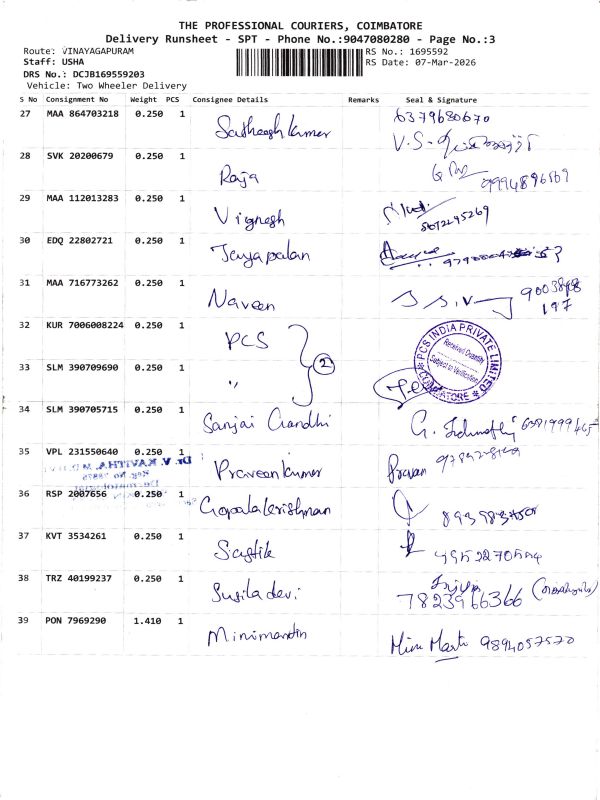 THE PROFESSIONAL COURIERS, COIMBATORE
Delivery Runsheet - SPT - Phone No.:9047080280 - Page No.:3
Route: VINAYAGAPURAM RS No.: 1695592
Staff: USHA RS Date: 07-Mar-2026
DRS No.: DCJB169559203
Vehicle: Two Wheeler Delivery
S No Consignment No Weight PCS Consignee Details Remarks Seal & Signature
27 MAA 864703218 0.250 1 Satheeshkumar 6379680670
V.S.
28 SVK 20200679 0.250 1 Raja 9994896569
29 MAA 112013283 0.250 1 Vignesh
30 EDQ 22802721 0.250 1 Jayapalan
31 MAA 716773262 0.250 1 Naveen
197
32 KUR 7006008224 0.250 1 PCS
2
PCS INDIA PRIVATE LIMITED
Received Quantity
Subject to Verification
COIMBATORE
33 SLM 390709690 0.250 1 "
34 SLM 390705715 0.250 1 Sanjai Gandhi G.
35 VPL 231550640 0.250 1 Praveenkumar Pravan
Dr. V. KAVITHA, M.D.
36 RSP 2007656 0.250 1 Gopalakrishnan
37 KVT 3534261 0.250 1
38 TRZ 40199237 0.250 1 Susila devi 7823966366
39 PON 7969290 1.410 1 Minimartin Mini Mart 9894057570